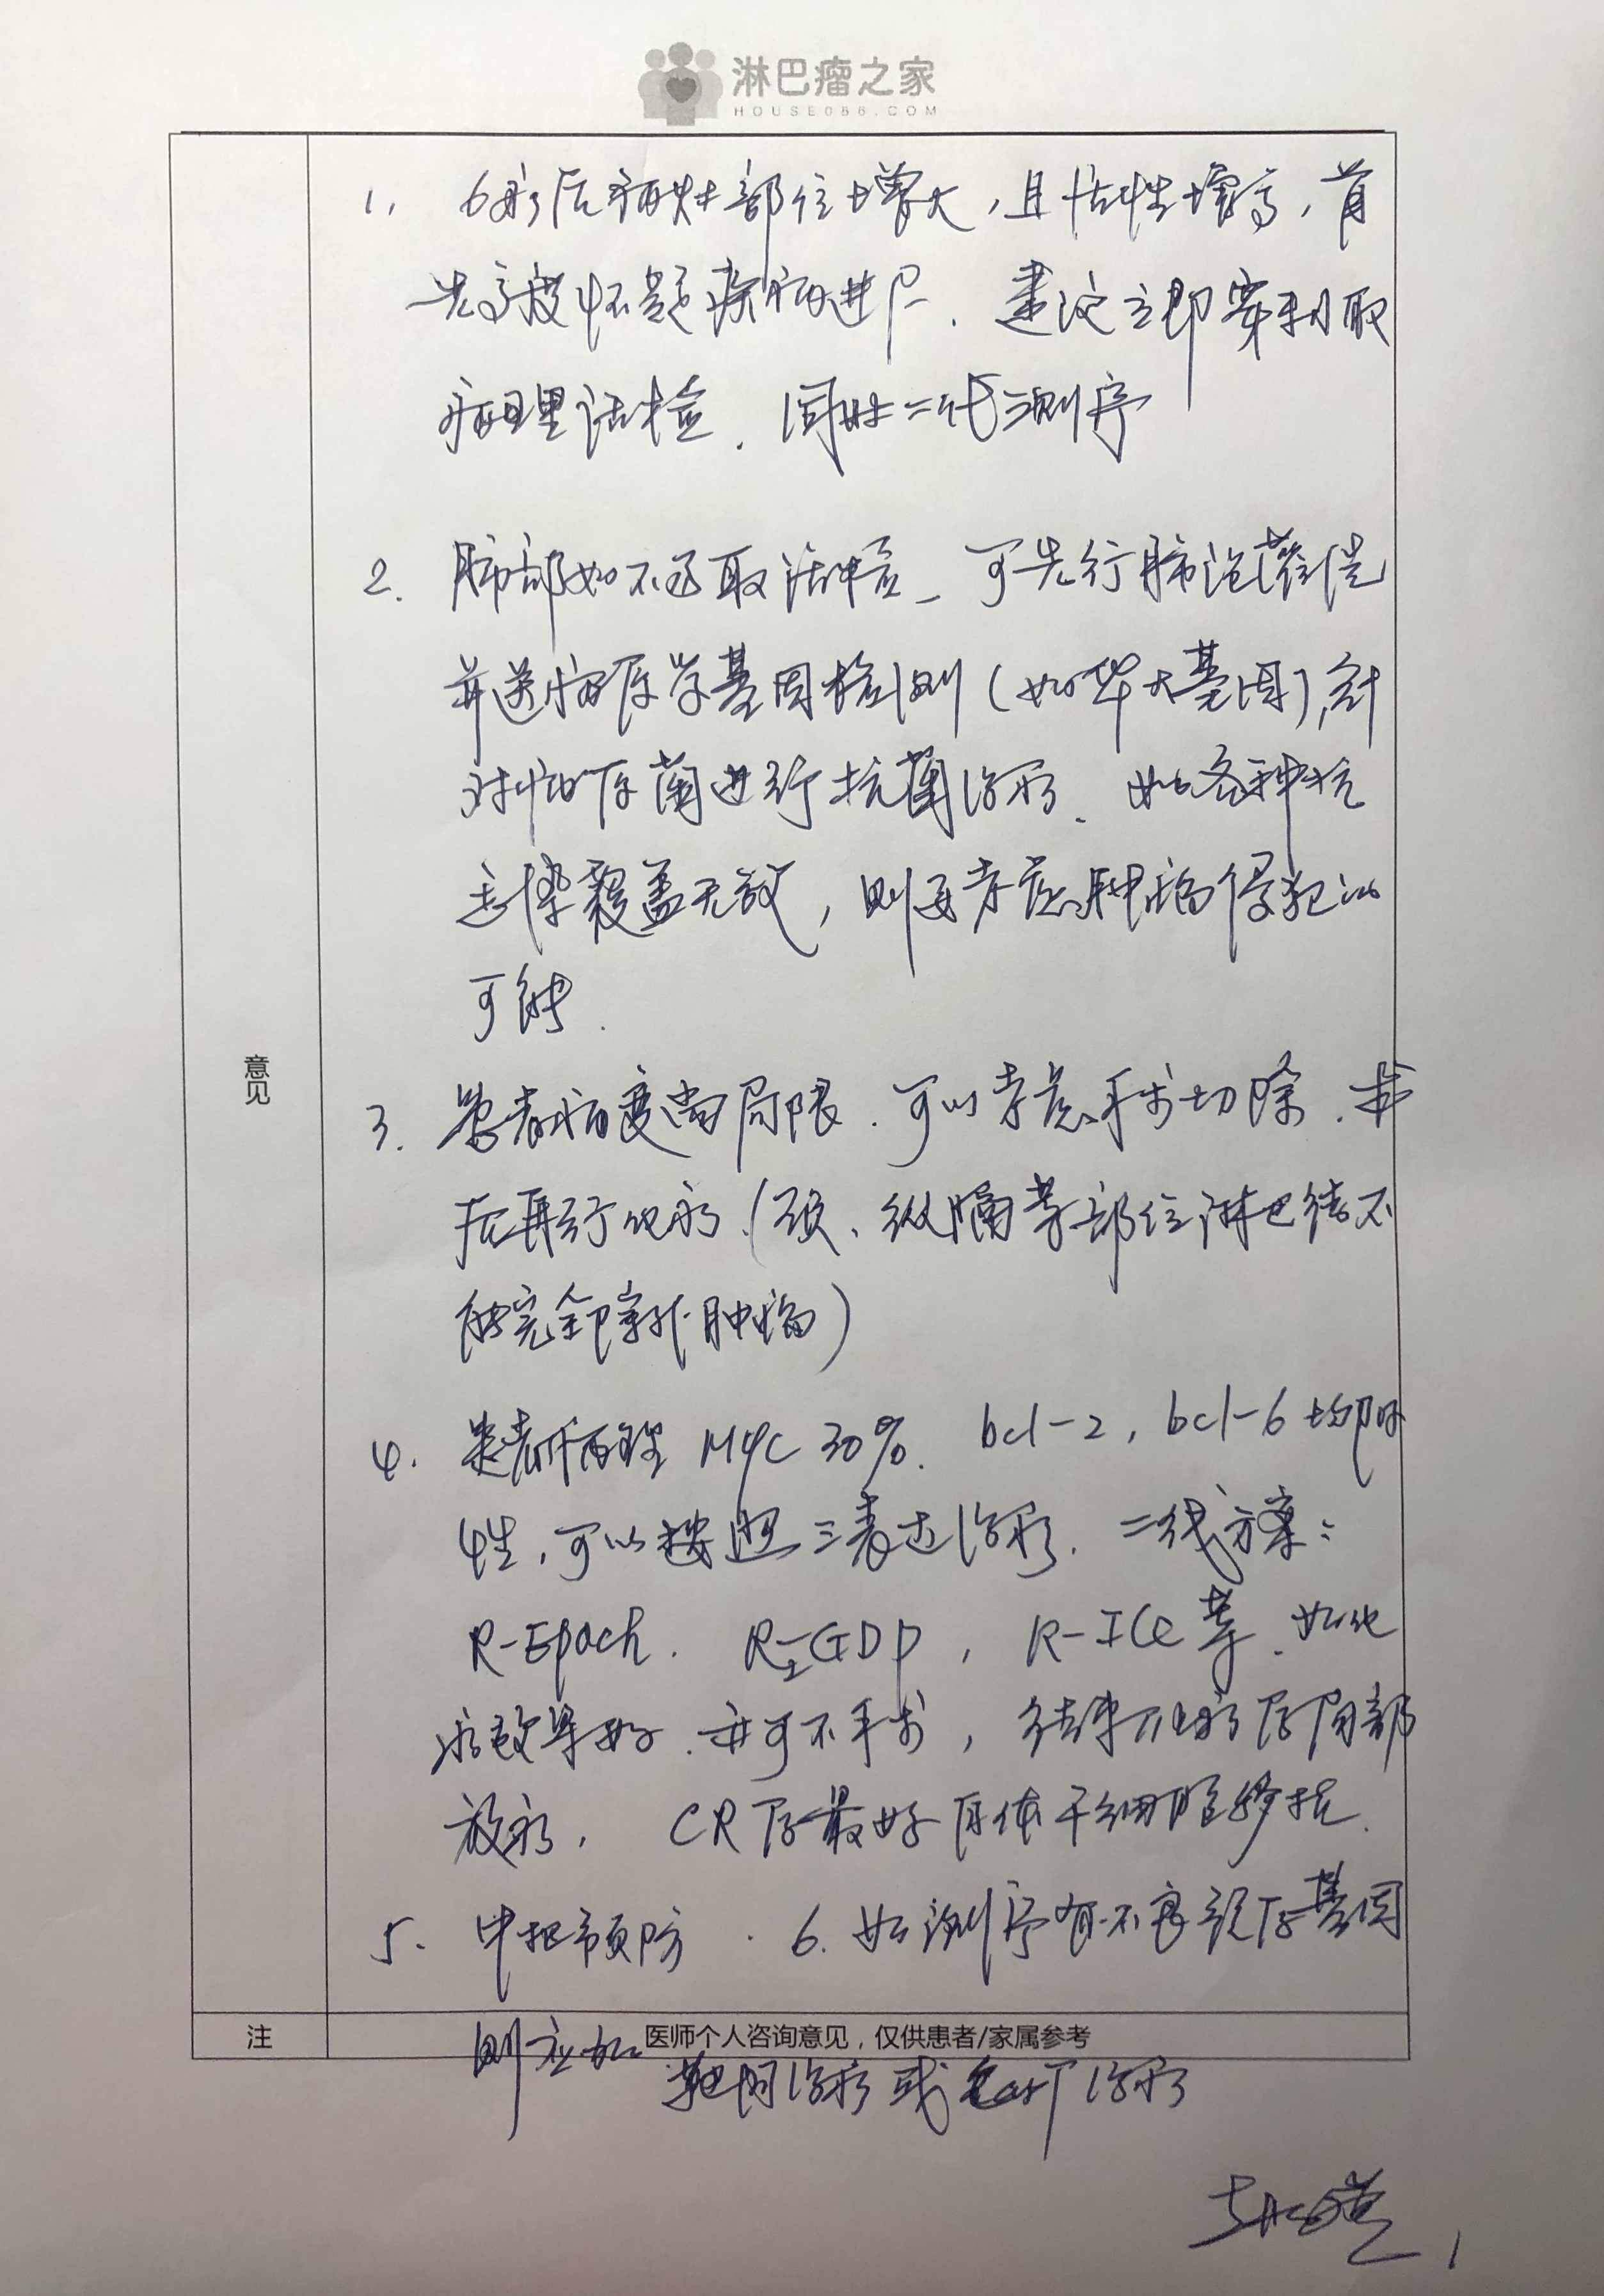 淋巴瘤之家
HOUSE086.COM
1. 6疗后病灶部位增大，且活性增高，首
先高度怀疑疾病进展. 建议立即穿刺取
病理活检. 同时二代测序
2. 肺部如不适取活检, 可先行肺泡灌洗
并送病原学基因检测(如华大基因),针
对病原菌进行抗菌治疗. 如各种抗
感染覆盖无效，则要考虑肿瘤侵犯的
可能.
意见
3. 患者病变尚局限. 可以考虑手术切除. 术
后再行化疗.(颈、纵膈等部位淋巴结不
能完全除外肿瘤)
4. 患者病理 MYC 30%. bcl-2, bcl-6 均阳
性, 可以按照三表达治疗. 二线方案:
R-Epoch. R-GDP, R-ICE等. 如化
疗效果好. 亦可不手术, 结束化疗后局部
放疗. CR后最好自体干细胞移植.
5. 中枢预防. 6. 如测序有不良预后基因
注 医师个人咨询意见，仅供患者/家属参考
则应加
靶向治疗或carT治疗